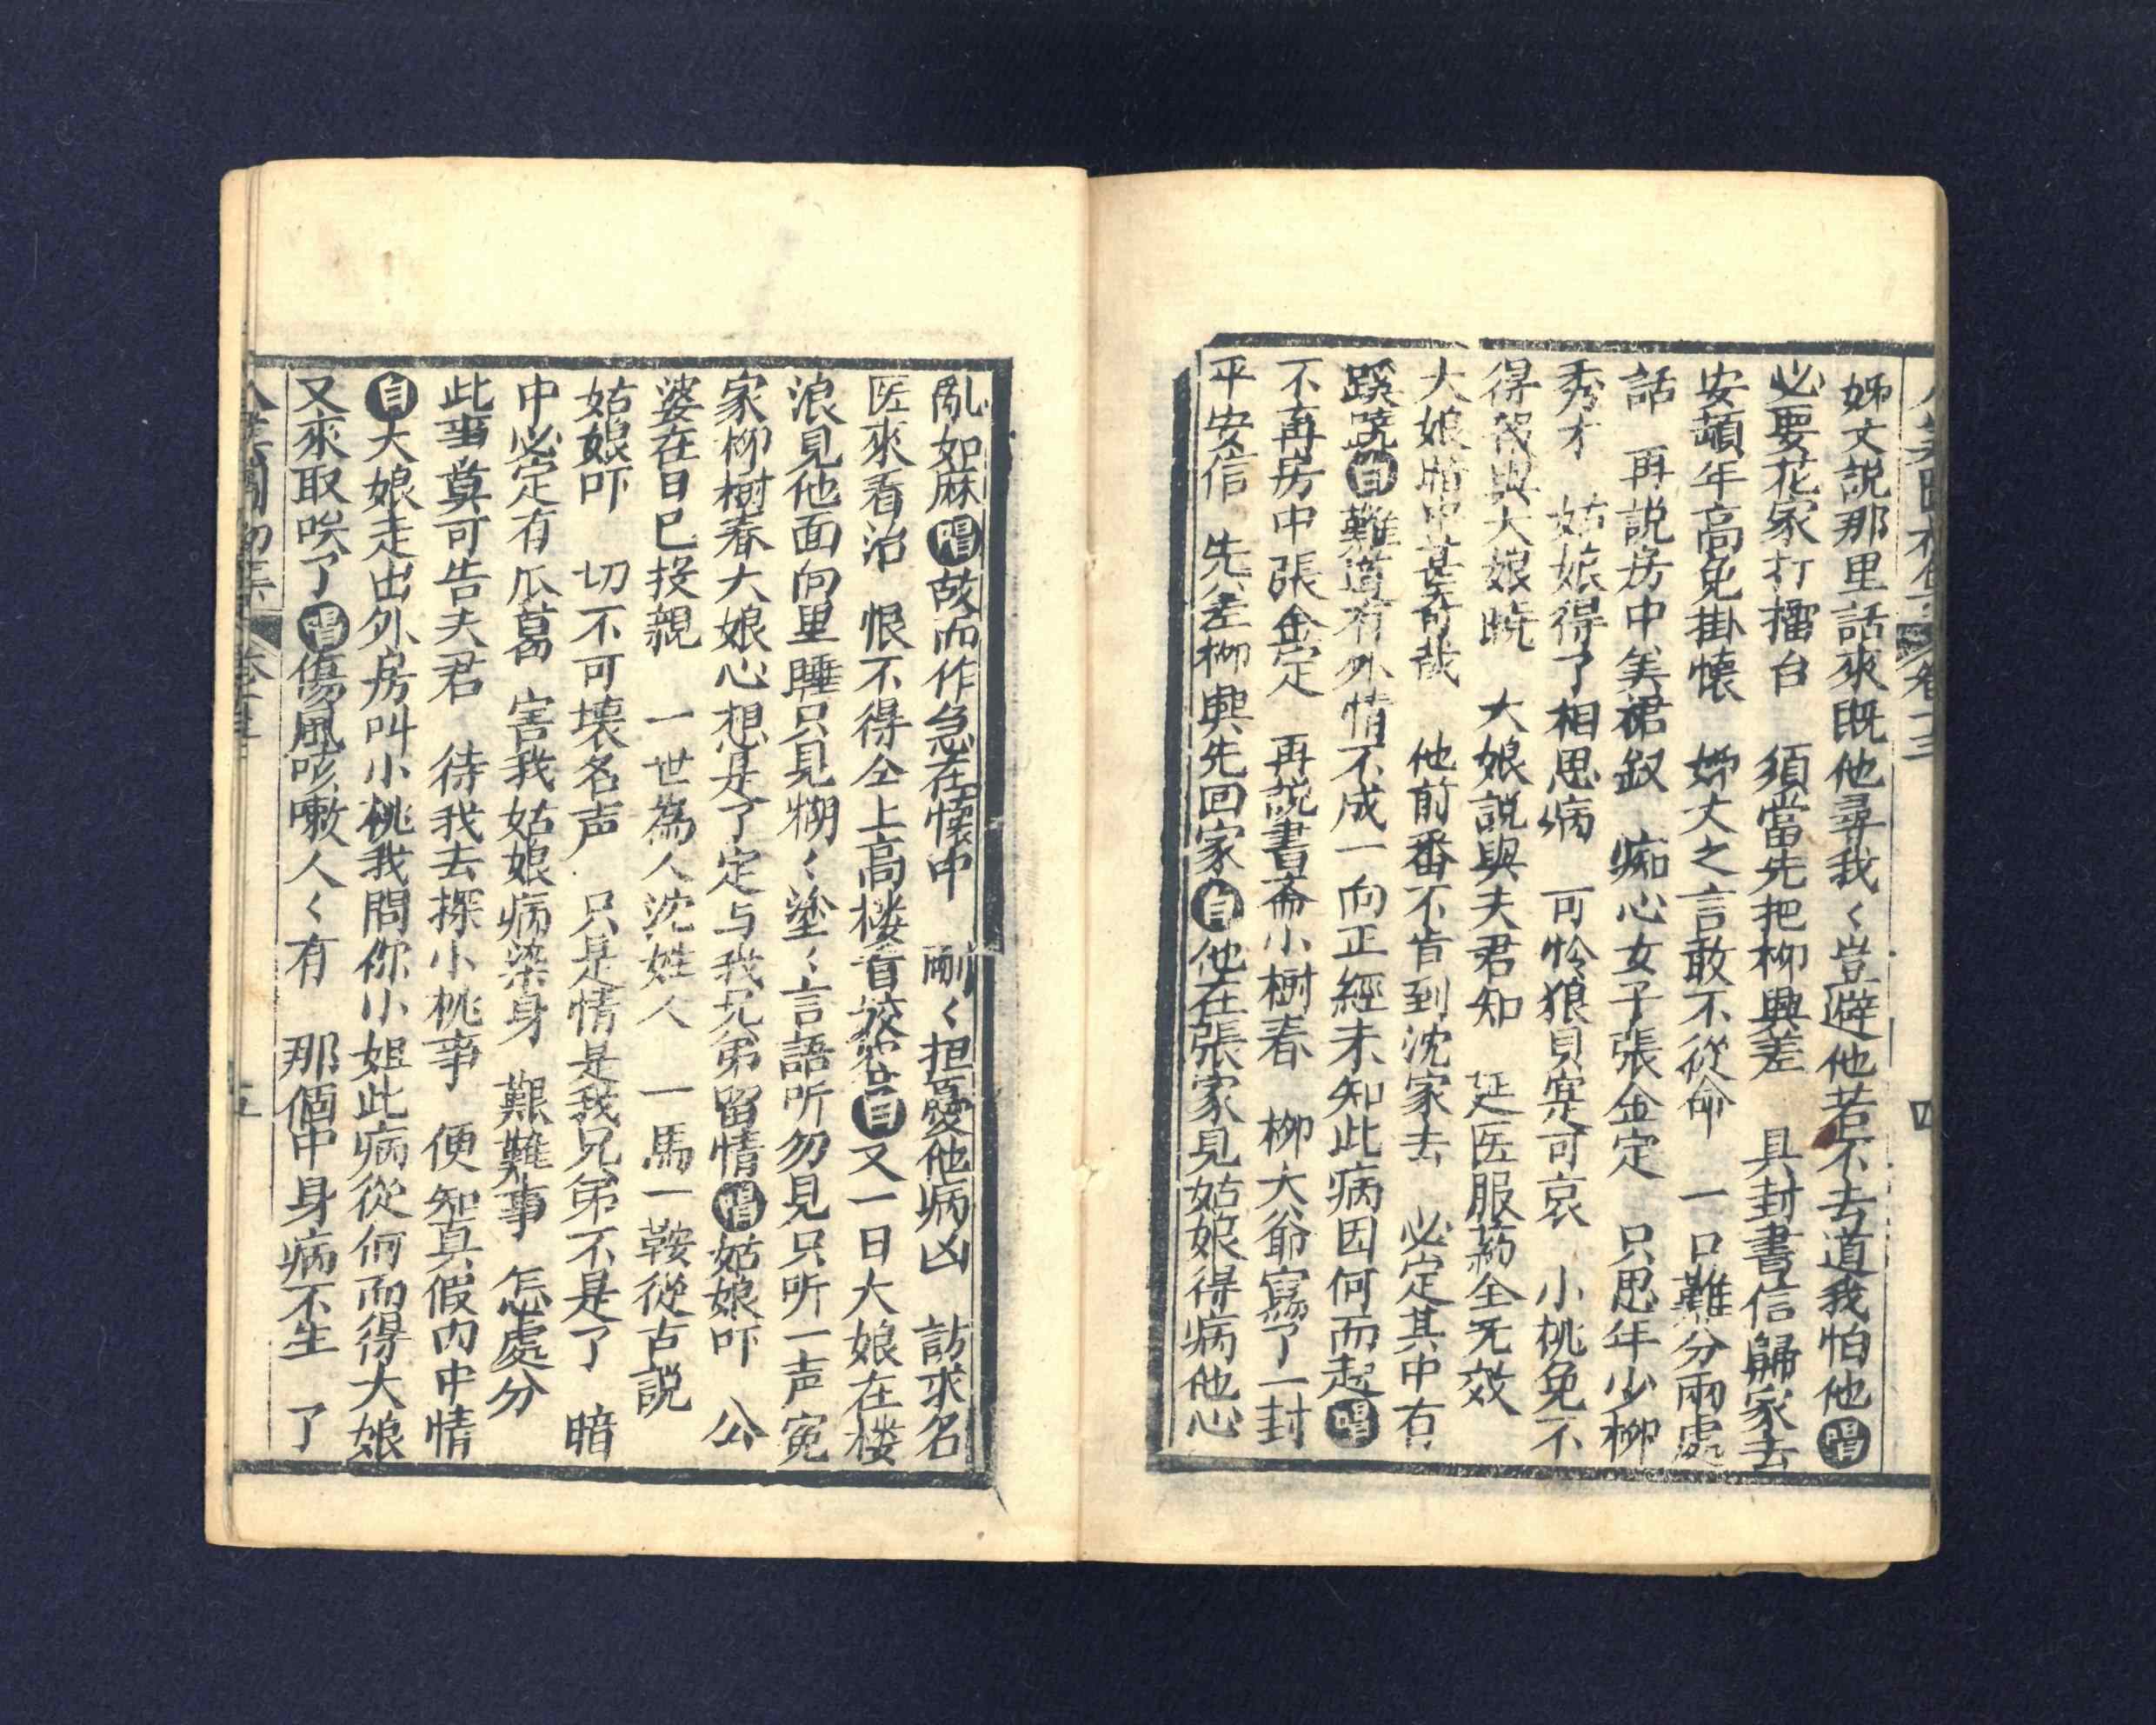 姊丈説那里話來既他尋我〱豈避他若不去道我怕他唱
必要花家打擂台　須當先把柳興差　具封書信歸家去
安頓年高免掛懷　姊丈之言敢不從命　一口難分兩處
話　再説房中美裙釵　痴心女子張金定　只思年少柳
秀才　姑娘得了相思病　可怜狼貝寔可哀　小桃免不
得我與大娘暁　大娘説與夫君知　延医服葯全无效
大娘暗中甚奇哉　他前番不肯到沈家去　必定其中有
蹊蹺白難道有外情不成一向正經未知此病因何而起唱
不再房中張金定　再説書斋小樹春　柳大爺寫了一封
平安信　先差柳興先回家白他在張家見姑娘得病他心
乱如麻唱故而作急在懷中　刷〱担憂他病凶　訪求名
医來看治　恨不得仝上高楼看姣容白又一日大娘在楼
浪見他面向里睡只見糊〱塗〱言語听勿見只听一声寃
家柳樹春大娘心想是了定与我兄弟留情唱姑娘吓　公
婆在日已投親　一世為人沈姓人　一馬一鞍從古説
姑娘吓　切不可壊名声　只是情是我兄弟不是了　暗
中必定有瓜葛　害我姑娘病染身　艱難事　怎處分
此事莫可告夫君　待我去探小桃事　便知真假内中情
白大娘走出外房叫小桃我問你小姐此病從何而得大娘
又來取咲了唱傷風咳嗽人〱有　那個中身病不生　了